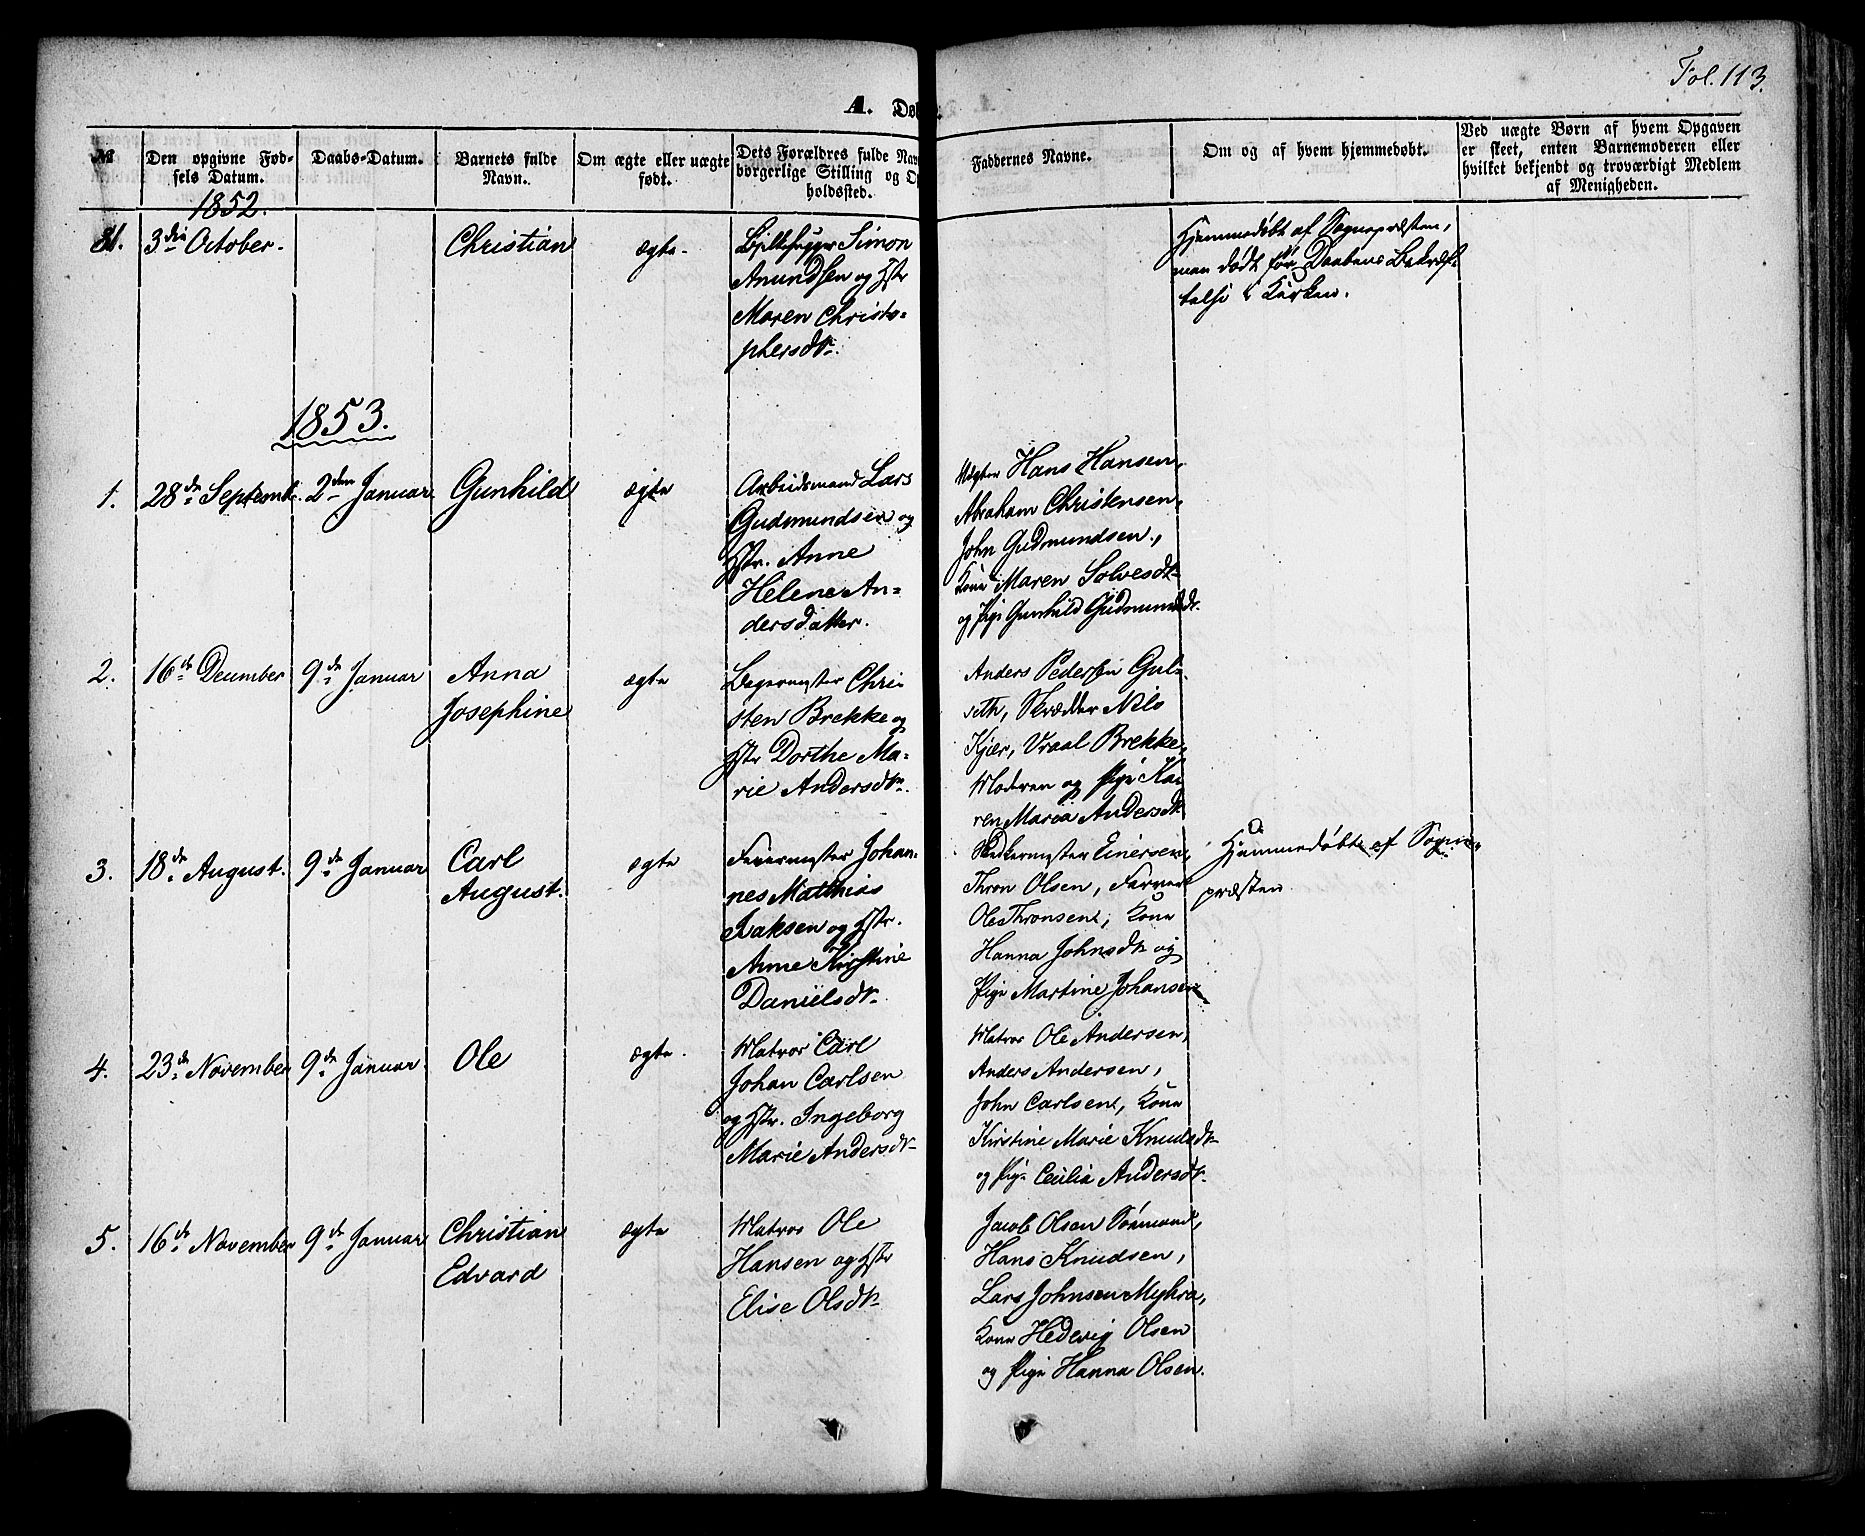 Fol. 113.
A. Dø
№
Den opgivne Fød-
sels Datum.
Daabs-Datum.
Barnets fulde
Navn.
Om ægte eller uægte
født.
Dets Forældres fulde Nav
borgerlige Stilling og Op
holdssted.
Faddernes Navne.
Om og af hvem hjemmedøbt.
Ved uægte Børn af hvem Opgaven
er skeet, enten Barnemoderen eller
hvilket bekjendt og troværdigt Medlem
af Menigheden.
1852.
81.
3die October.
Christian
ægte.
Simon
Amundsen og Hstr
Maren Christo-
phersdtr.
Hjemmedøbt af Sognepræsten,
men døde før Daabens Bekræf-
telse i Kirken.
1853.
1.
28de Septemb.
2den Januar
Gunhild
ægte
Arbeidsmand Lars
Gudmundsen og
Hstr. Anne
Helene An-
dersdatter.
Hans Hansen,
Abraham Christensen,
John Gudmundsen,
Kone Maren Solvesdtr
og Pige Gunhild Gudmundsdtr.
2.
16de December
9de Januar
Anna
Josephine
ægte
Bagermester Chri-
sten Brekke og
Hstr Dorthe Ma-
rie Andersdtr.
Anders Pedersen Gul-
seth, Skrædder Nils
Kjær, Vraal Brekke,
Moderen og Pige Ka-
ren Maria Andersdtr
3.
18de August.
9de Januar
Carl
August.
ægte
Farvermester Johan-
nes Matthias
Isaksen og Hstr.
Anne Kirstine
Danielsdtr.
Einersen,
Thron Olsen, Farver
Ole Thronsen, Kone
Hanna Johnsdtr og
Pige Martine Johansen
Hjemmedøbt af Sogne-
præsten
4.
23de November
9de Januar.
Ole
ægte.
Matros Carl
Johan Carlsen
og Hstr. Ingeborg
Marie Andersdtr
Matros Ole Andersen,
Anders Andersen,
John Carlsen, Kone
Kirstine Marie Knudsdtr
og Pige Cecilia Andersdtr.
5.
16de November
9de Januar
Christian
Edvard
ægte
Matros Ole
Hansen og Hstr
Elise Olsdtr
Jacob Olsen Sømand,
Hans Knudsen,
Lars Johnsen Myhra,
Kone Hedevig Olsen
og Pige Hanna Olsen.